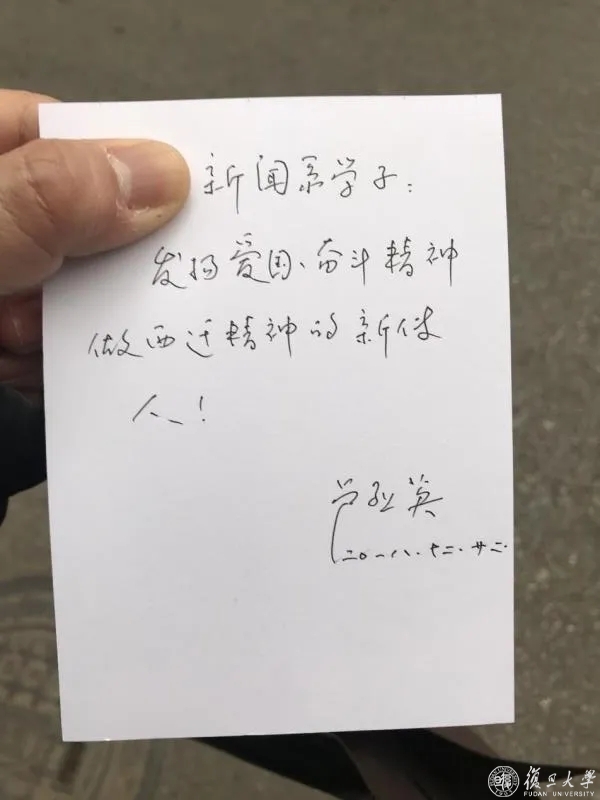 新闻系学子：
发扬爱国、奋斗精神
做西迁精神的新传
人！
卢烈英
二〇一八、十二、廿二.
復旦大學
FUDAN UNIVERSITY